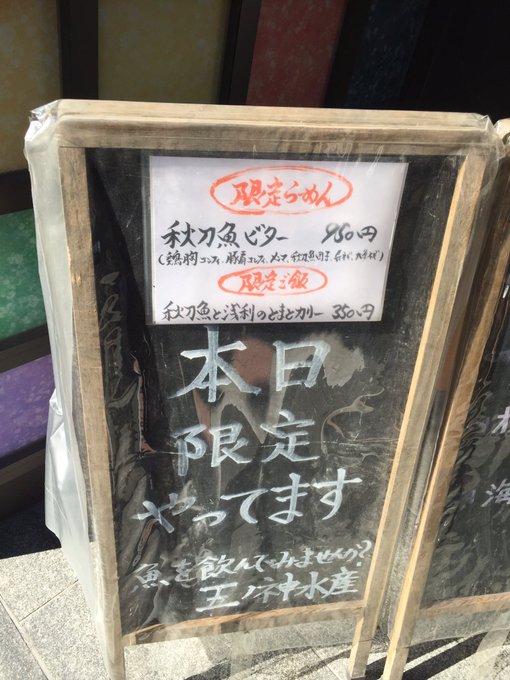 限定らーめん
秋刀魚ビター 950円
(鶏胸コンフィ、豚肩コンフィ、メンマ、秋刀魚団子、
限定ご飯
秋刀魚と浅利のとまとカリー 350円
本日
限定
やってます
魚を飲んでみませんか?
五ノ神水産
海